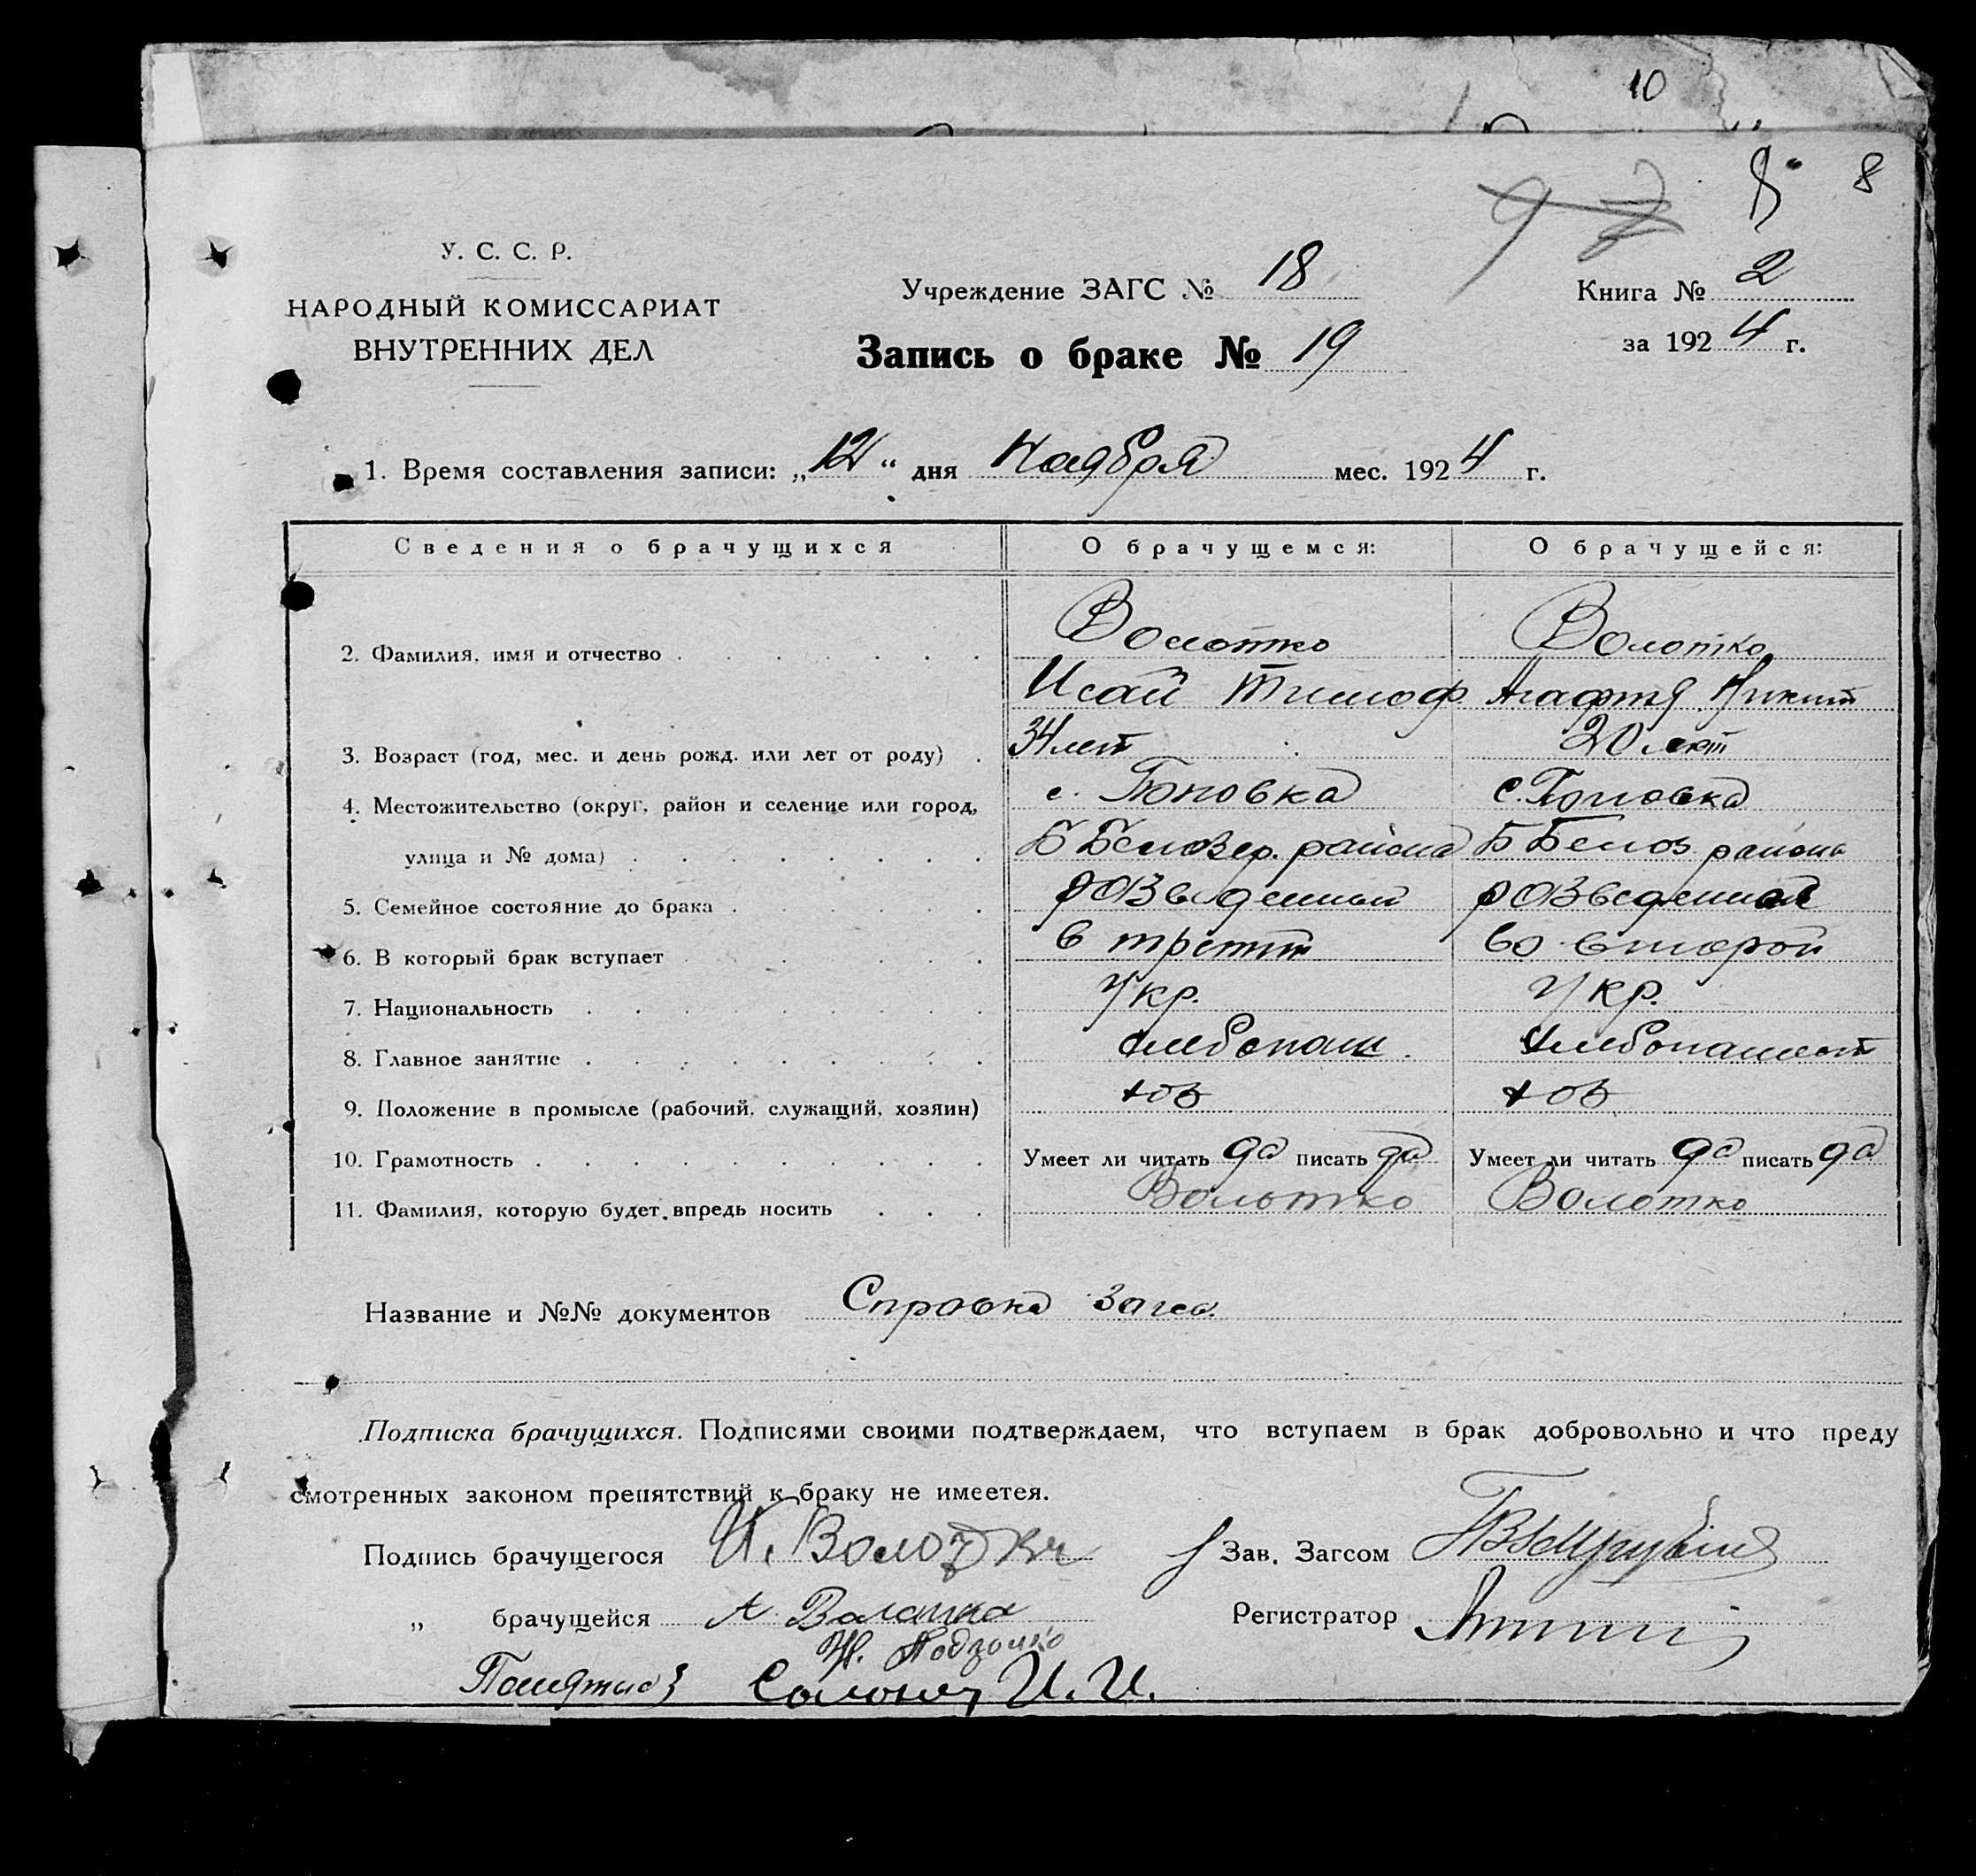 10
8
8
У. С. С. Р.
НАРОДНЫЙ КОМИССАРИАТ
ВНУТРЕННИХ ДЕЛ
Учреждение ЗАГС № 18
Запись о браке № 19
Книга № 2
за 1924 г.
1. Время составления записи: „12“ дня Ноября мес. 1924 г.
Сведения о брачущихся О брачущемся: О брачущейся:
2. Фамилия, имя и отчество Волотко Волотко
Исай Тимоф. Агафия Никит
3. Возраст (год, мес. и день рожд. или лет от роду) 34 лет 20 лет
4. Местожительство (округ, район и селение или город, с. Поповка с. Поповка
улица и № дома) Б Белозер. района Б Белоз района
5. Семейное состояние до брака разведенный разведенная
6. В который брак вступает в третий во второй
7. Национальность Укр. Укр.
8. Главное занятие хлебопаш. хлебопашест
9. Положение в промысле (рабочий, служащий, хозяин) хоз хоз
10. Грамотность Умеет ли читать да писать да Умеет ли читать да писать да
11. Фамилия, которую будет впредь носить Волотко Волотко
Название и №№ документов Справка Загса.
Подписка брачущихся. Подписями своими подтверждаем, что вступаем в брак добровольно и что преду
смотренных законом препятствий к браку не имеется.
Подпись брачущегося И. Волотко Зав. Загсом
„ брачущейся А Валатка Регистратор
И. И.